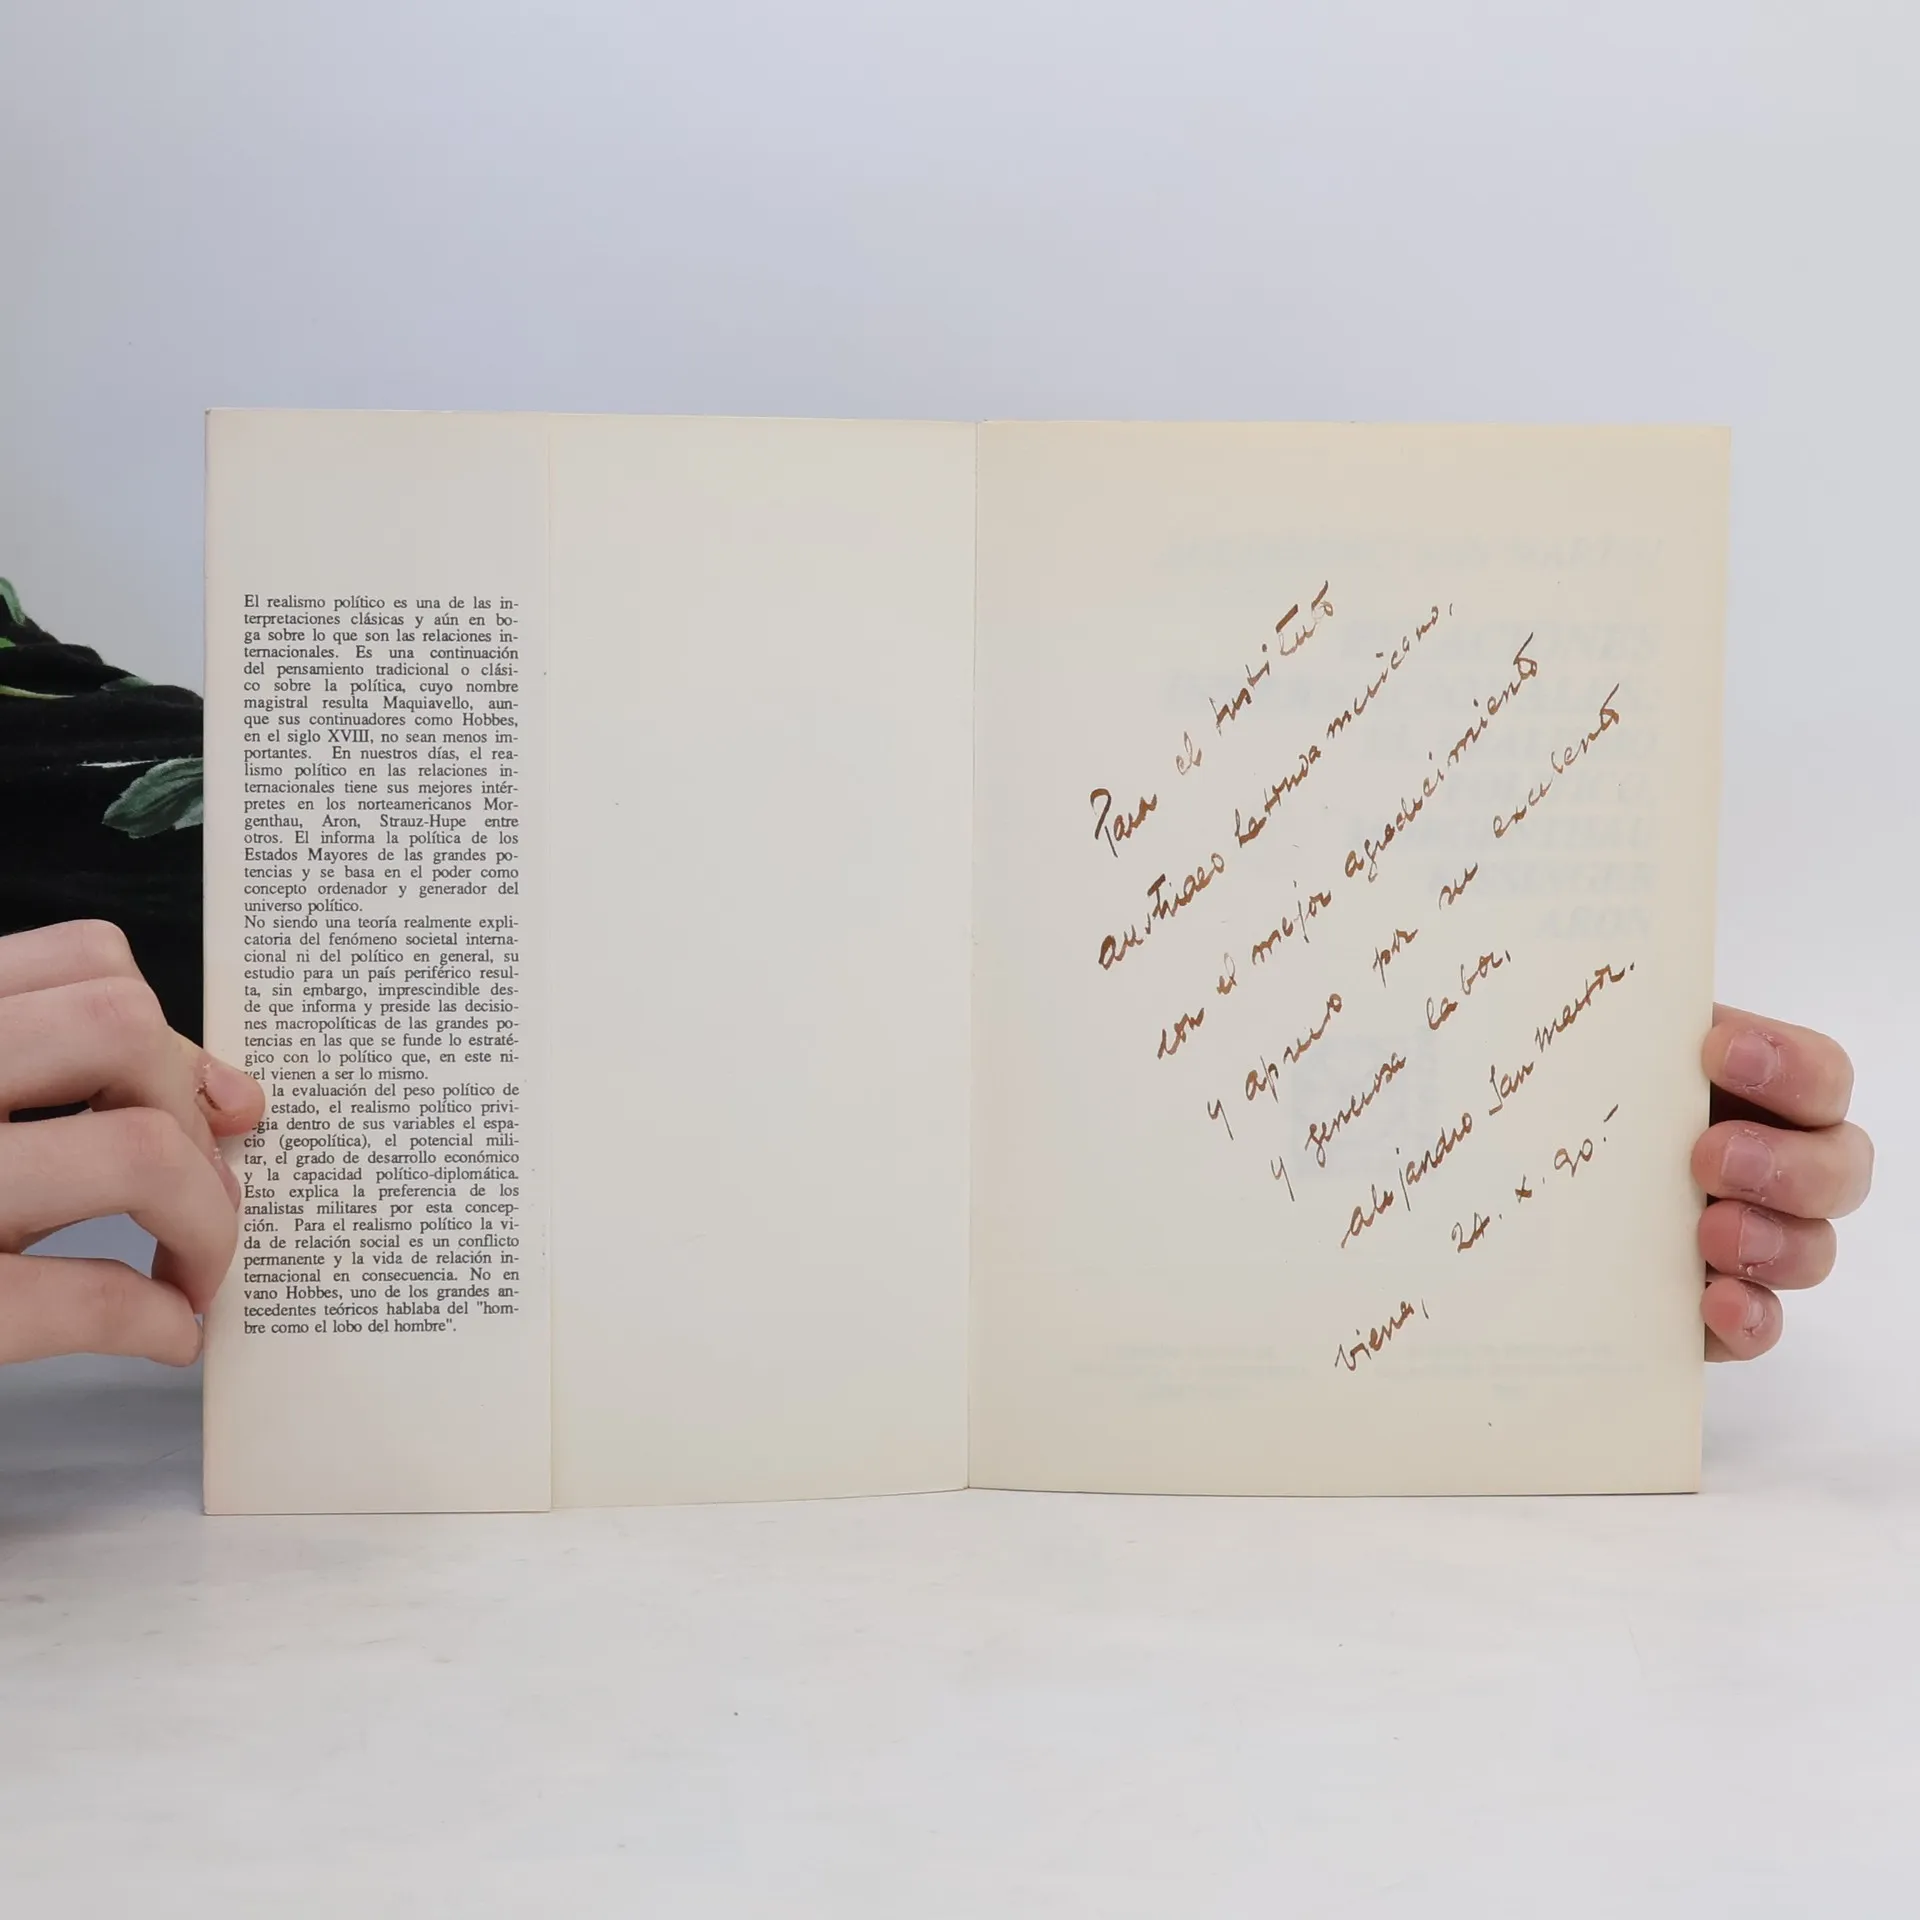 El realismo político es una de las in-
terpretaciones clásicas y aún en bo-
ga sobre lo que son las relaciones in-
ternacionales. Es una continuación
del pensamiento tradicional o clási-
co sobre la política, cuyo nombre
magistral resulta Maquiavello, aun-
que sus continuadores como Hobbes,
en el siglo XVIII, no sean menos im-
portantes. En nuestros días, el rea-
lismo político en las relaciones in-
ternacionales tiene sus mejores intér-
pretes en los norteamericanos Mor-
genthau, Aron, Strauz-Hupe entre
otros. El informa la política de los
Estados Mayores de las grandes po-
tencias y se basa en el poder como
concepto ordenador y generador del
universo político.
No siendo una teoría realmente expli-
catoria del fenómeno societal interna-
cional ni del político en general, su
estudio para un país periférico resul-
ta, sin embargo, imprescindible des-
de que informa y preside las decisio-
nes macropolíticas de las grandes po-
tencias en las que se funde lo estraté-
gico con lo político que, en este ni-
vel vienen a ser lo mismo.
la evaluación del peso político de
estado, el realismo político privi-
gia dentro de sus variables el espa-
cio (geopolítica), el potencial mili-
tar, el grado de desarrollo económico
y la capacidad político-diplomática.
Esto explica la preferencia de los
analistas militares por esta concep-
ción. Para el realismo político la vi-
da de relación social es un conflicto
permanente y la vida de relación in-
ternacional en consecuencia. No en
vano Hobbes, uno de los grandes an-
tecedentes teóricos hablaba del "hom-
bre como el lobo del hombre".
Para el Instituto
austriaco Latinoamericano,
con el mejor agradecimiento
y aprecio por su excelente
y generosa labor,
alejandro San Martín.
viena, 24. x. 90.-